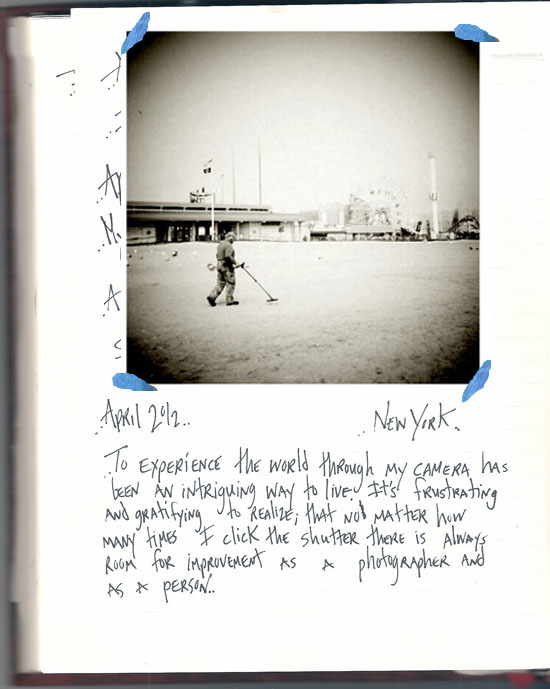 April 2012..
New York.
To experience the world through my camera has
been an intriguing way to live. It's frustrating
and gratifying to realize; that not matter how
many times I click the shutter there is always
room for improvement as a photographer and
as a person..